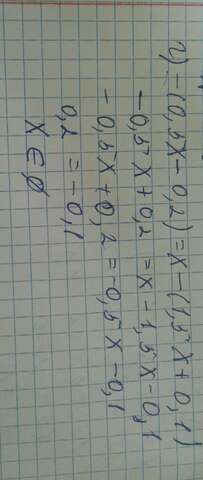 2) -(0,5x-0,2)=x-(1,5x+0,1)
-0,5x+0,2=x-1,5x-0,1
-0,5x+0,2=-0,5x-0,1
0,2=-0,1
x∈∅